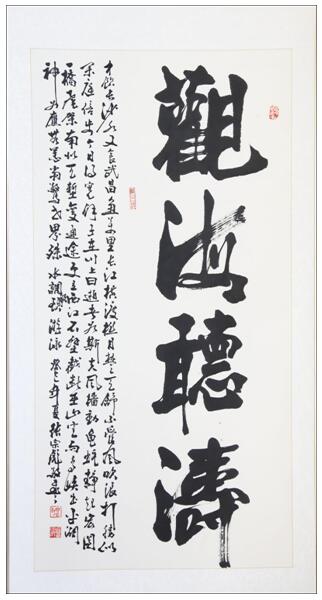 觀海聽濤
才飲長沙水又食武昌魚萬里長江橫渡極目楚天舒不管風吹浪打勝似
閑庭信步今日得寬餘子在川上曰逝者如斯夫風檣動龜蛇靜起宏圖
一橋飛架南北天塹變通途更立西江石壁截斷巫山雲雨高峽出平湖
神女應無恙當驚世界殊 水調歌頭 游泳 癸巳年夏